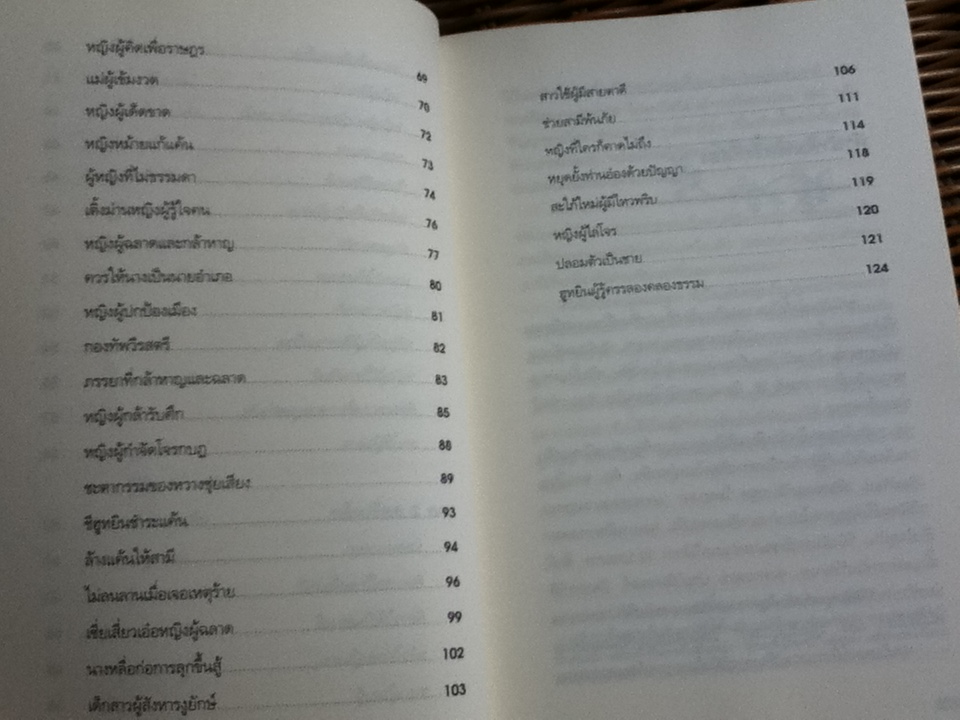 หญิงผู้คิดเพื่อราษฎร 69
แม่ผู้เข้มงวด 70
หญิงผู้เด็ดขาด 72
หญิงหม้ายแก้แค้น 73
ผู้หญิงที่ไม่ธรรมดา 74
เติ้งม่านหญิงผู้รู้ใจคน 76
หญิงผู้ฉลาดและกล้าหาญ 77
ควรให้นางเป็นนายอำเภอ 80
หญิงผู้ปกป้องเมือง 81
กองทัพวีรสตรี 82
ภรรยาที่กล้าหาญและฉลาด 83
หญิงผู้กล้ารับศึก 85
หญิงผู้กำจัดโจรกบฏ 88
ชะตากรรมของหวางชุ่ยเสียง 89
ชีฮูหยินชำระแค้น 93
ล้างแค้นให้สามี 94
ไม่ลนลานเมื่อเจอเหตุร้าย 96
เซี่ยเสี่ยวเอ๋อหญิงผู้ฉลาด 99
นางหลื่อก่อการลุกขึ้นสู้ 102
เด็กสาวผู้สังหารงูยักษ์ 103
สาวใช้ผู้มีสายตาดี 106
ช่วยสามีพ้นภัย 111
หญิงที่ใครก็คาดไม่ถึง 114
หยุดยั้งท่านอ๋องด้วยปัญญา 118
สะใภ้ใหม่ผู้มีไหวพริบ 119
หญิงผู้ไล่โจร 120
ปลอมตัวเป็นชาย 121
ฮูหยินผู้รู้ครรลองคลองธรรม 124